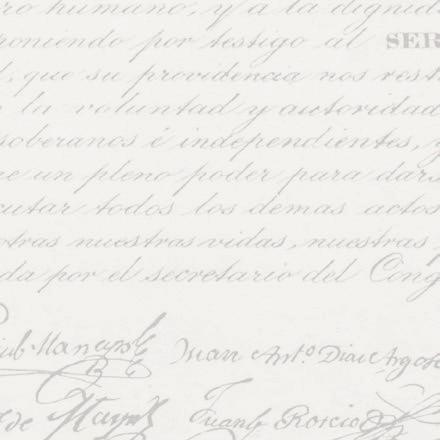 ro humano, y a la dignid
poniendo por testigo al SER
l, que su providencia nos rest
la voluntad y autoridad
soberanos é independientes, y
e un pleno poder para dars
cutar todos los demas actos
otras nuestras vidas, nuestras
da por el secretario del Cong
Juan Ant.º Diaz Argote
de Juan G. Roscio